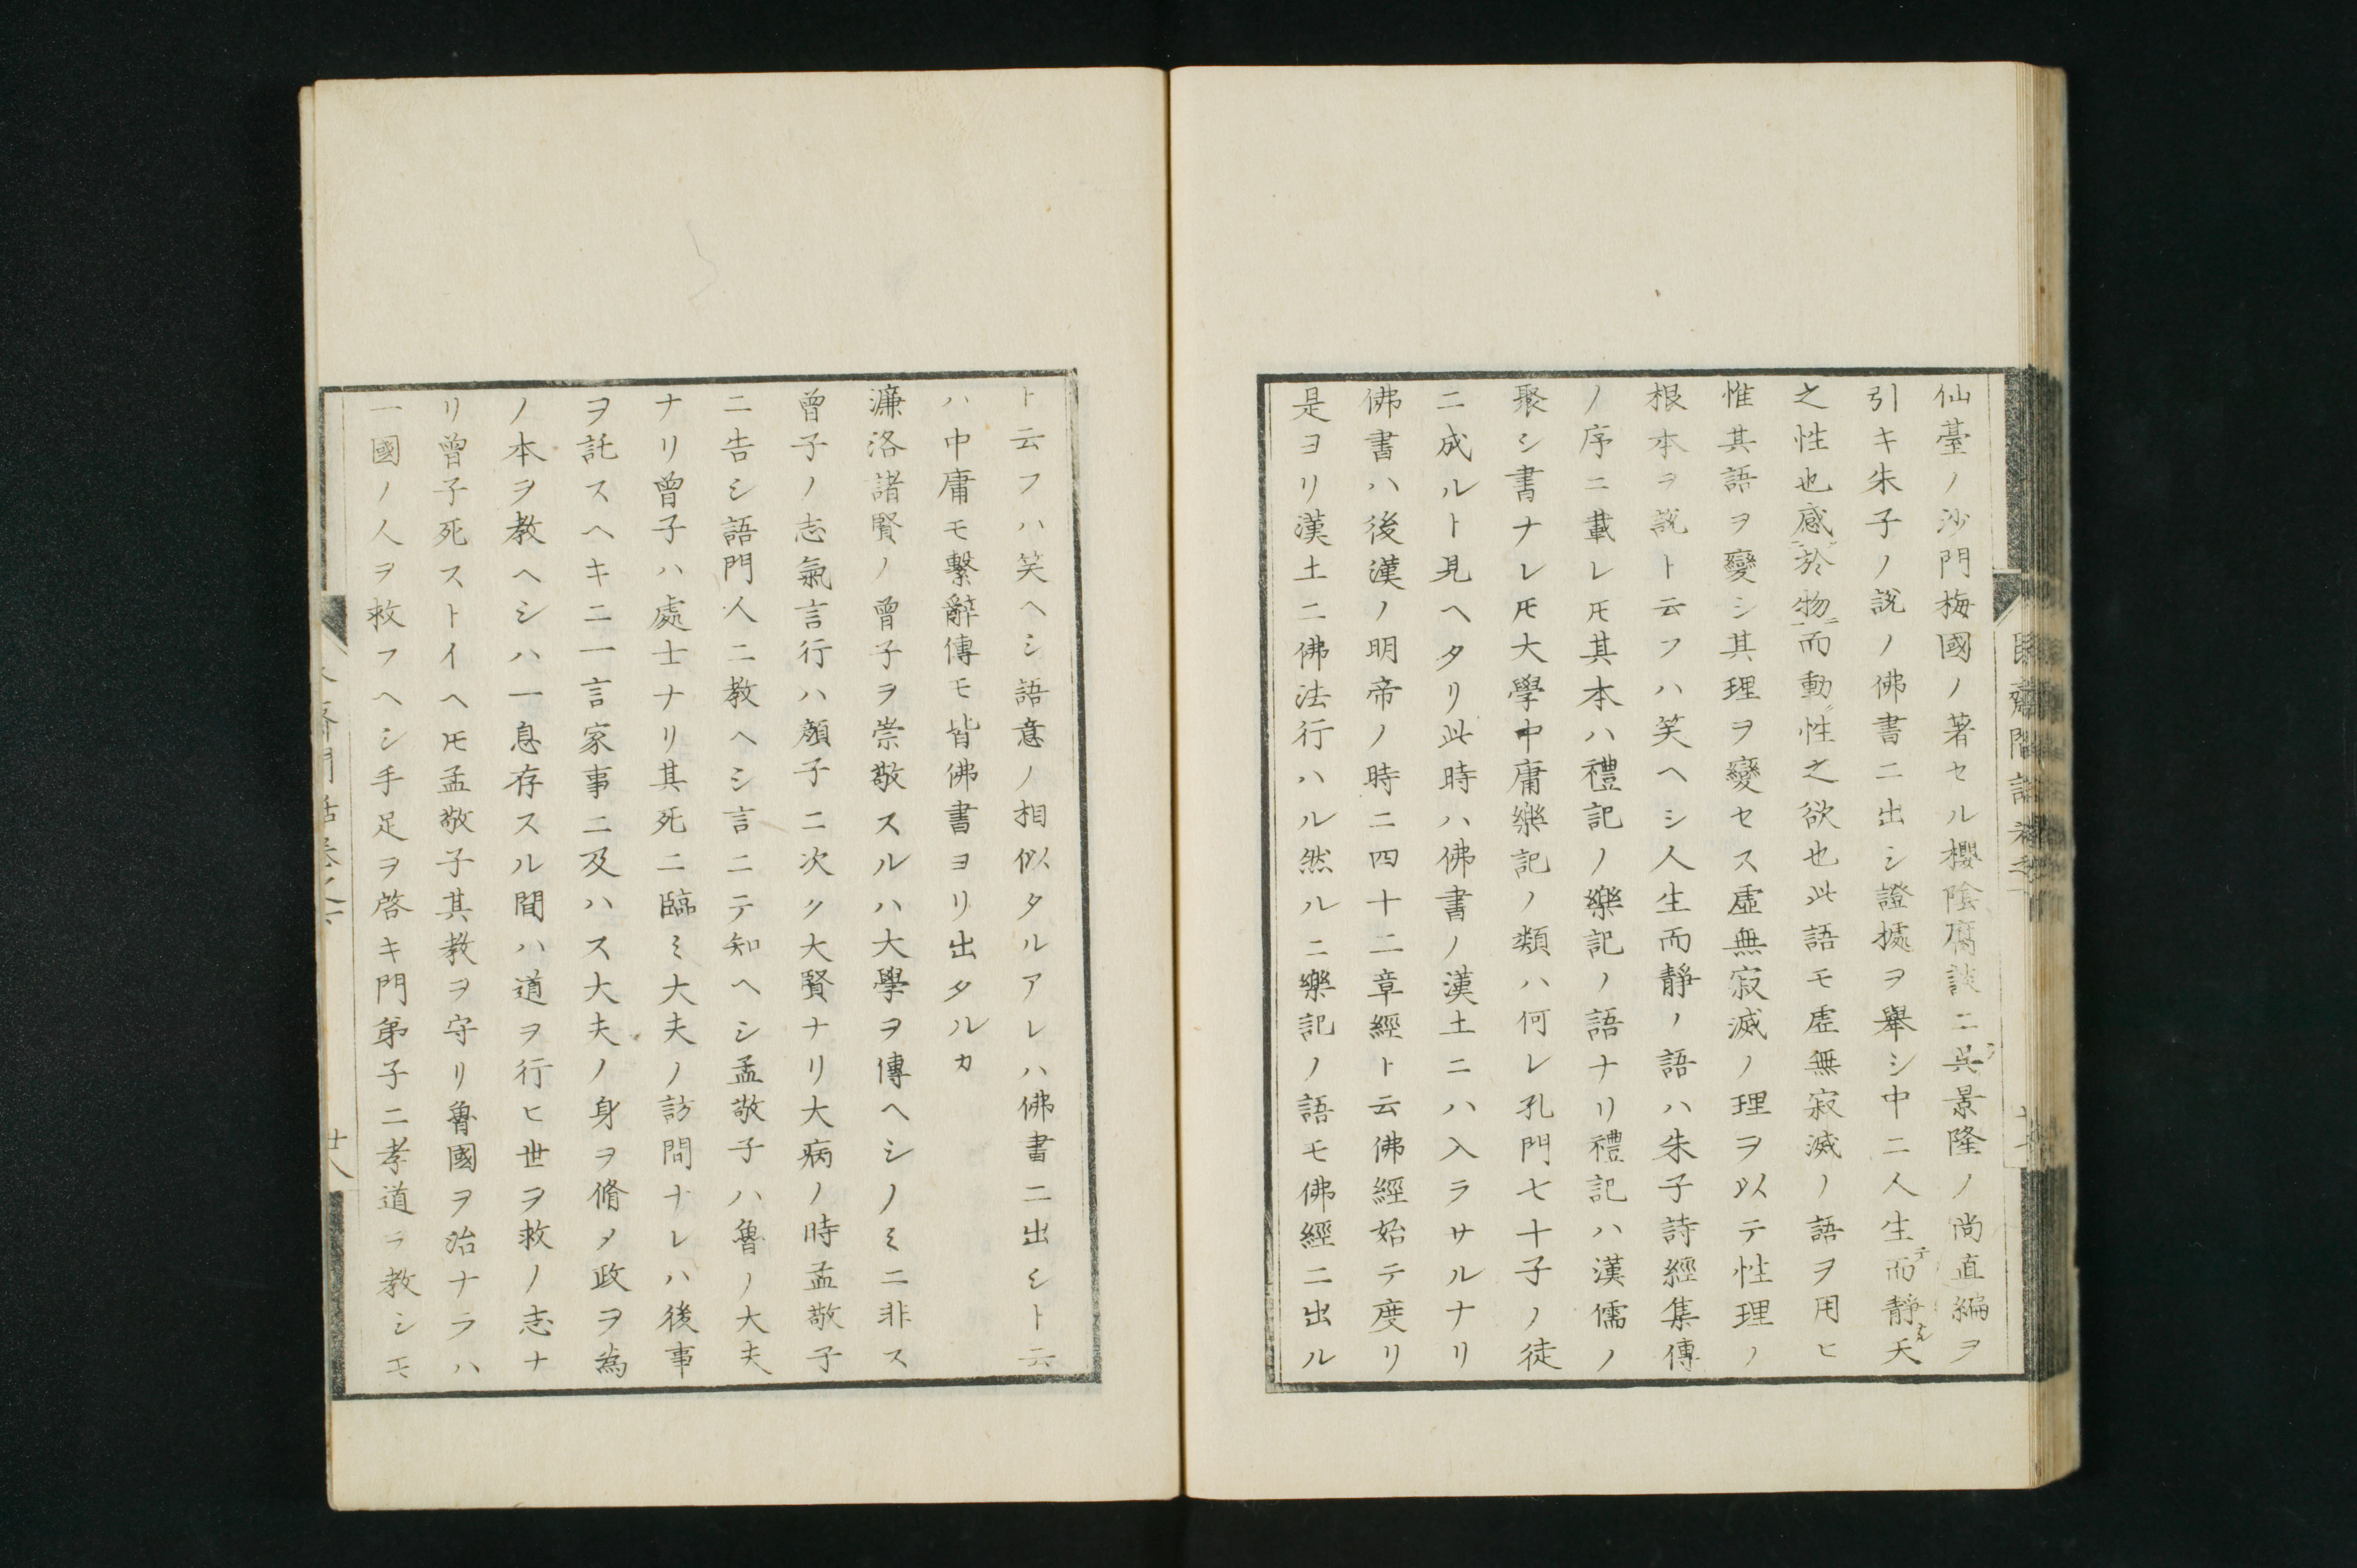 仙臺ノ沙門梅國ノ著セル櫻陰腐談ニ呉景隆ノ尚直編ヲ
引キ朱子ノ說ノ佛書ニ出シ證據ヲ舉シ中ニ人生而テ靜ハ天
之性也感於物ニ而動性之欲也此語モ虛無寂滅ノ語ヲ用ヒ
惟其語ヲ變シ其理ヲ變セス虛無寂滅ノ理ヲ以テ性理ノ
根本ヲ說ト云フハ笑ヘシ人生而靜ノ語ハ朱子詩經集傳
ノ序ニ載レ𪜈其本ハ禮記ノ樂記ノ語ナリ禮記ハ漢儒ノ
聚シ書ナレ𪜈大學中庸樂記ノ類ハ何レ孔門七十子ノ徒
ニ成ルト見ヘタリ此時ハ佛書ノ漢土ニハ入ラサルナリ
佛書ハ後漢ノ明帝ノ時ニ四十二章經ト云佛經始テ度リ
是ヨリ漢土ニ佛法行ハル然ルニ樂記ノ語モ佛經ニ出ル
ト云フハ笑ヘシ語意ノ相似タルアレハ佛書ニ出シト云
ハ中庸モ繫辭傳モ皆佛書ヨリ出タルカ
濂洛諸賢ノ曾子ヲ崇敬スルハ大學ヲ傳ヘシノミニ非ス
曾子ノ志氣言行ハ顏子ニ次ク大賢ナリ大病ノ時孟敬子
ニ告シ語門人ニ教ヘシ言ニテ知ヘシ孟敬子ハ魯ノ大夫
ナリ曾子ハ處士ナリ其死ニ臨ミ大夫ノ訪問ナレハ後事
ヲ託スヘキニ一言家事ニ及ハス大夫ノ身ヲ脩メ政ヲ為
ノ本ヲ教ヘシハ一息存スル間ハ道ヲ行ヒ世ヲ救ノ志ナ
リ曾子死ストイヘ𪜈孟敬子其教ヲ守リ魯國ヲ治ナラハ
一國ノ人ヲ救フヘシ手足ヲ啓キ門弟子ニ孝道ヲ教シモ